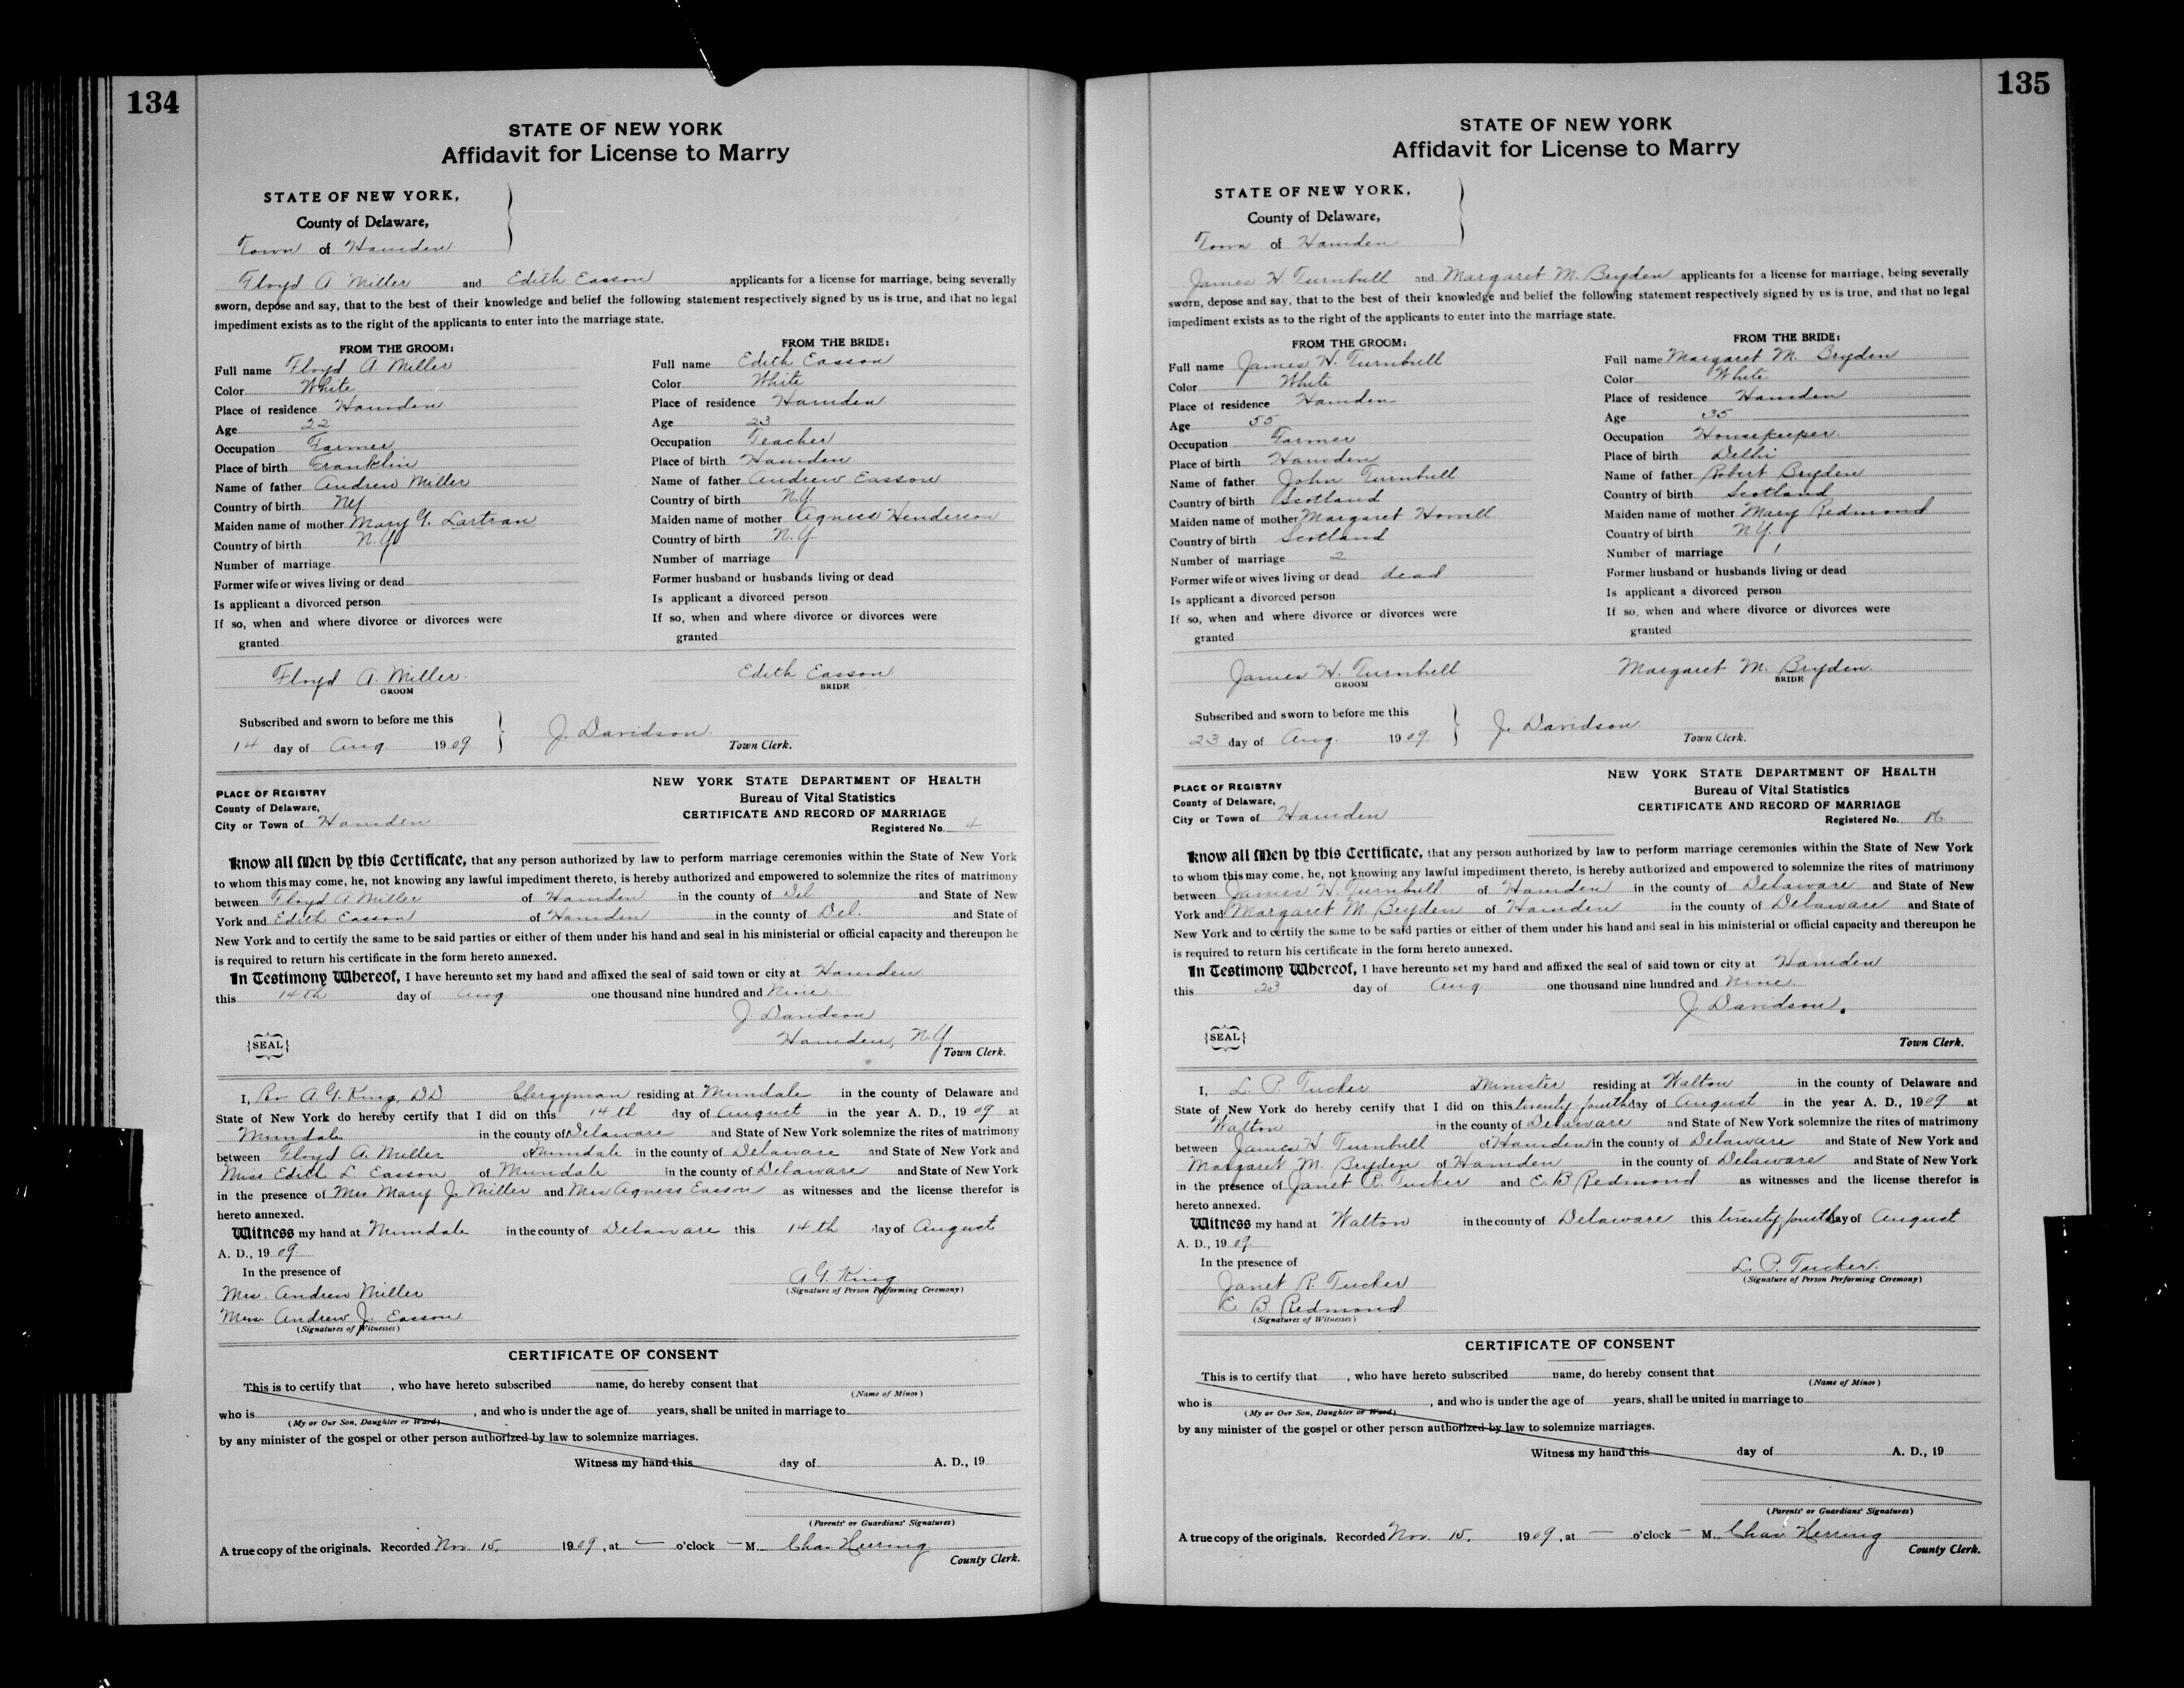 134
STATE OF NEW YORK
Affidavit for License to Marry
STATE OF NEW YORK,
County of Delaware,
Town of Hamden
Floyd A Miller and Edith Easson applicants for a license for marriage, being severally
sworn, depose and say, that to the best of their knowledge and belief the following statement respectively signed by us is true, and that no legal
impediment exists as to the right of the applicants to enter into the marriage state.
FROM THE GROOM:
Full name Floyd A Miller
Color White
Place of residence Hamden
Age 22
Occupation Farmer
Place of birth Franklin
Name of father Andrew Miller
Country of birth NY
Maiden name of mother Mary G. Lartran
Country of birth N.Y.
Number of marriage 1
Former wife or wives living or dead
Is applicant a divorced person
If so, when and where divorce or divorces were
granted
FROM THE BRIDE:
Full name Edith Easson
Color White
Place of residence Hamden
Age 23
Occupation Teacher
Place of birth Hamden
Name of father Andrew Easson
Country of birth N.Y.
Maiden name of mother Agness Henderson
Country of birth N.Y.
Number of marriage 1
Former husband or husbands living or dead
Is applicant a divorced person
If so, when and where divorce or divorces were
granted
Floyd A. Miller Edith Easson
GROOM BRIDE
Subscribed and sworn to before me this
14 day of Aug 1909 J. Davidson
Town Clerk.
PLACE OF REGISTRY
County of Delaware,
City or Town of Hamden
NEW YORK STATE DEPARTMENT OF HEALTH
Bureau of Vital Statistics
CERTIFICATE AND RECORD OF MARRIAGE
Registered No. 4
Know all Men by this Certificate, that any person authorized by law to perform marriage ceremonies within the State of New York
to whom this may come, he, not knowing any lawful impediment thereto, is hereby authorized and empowered to solemnize the rites of matrimony
between Floyd A Miller of Hamden in the county of Del and State of New
York and Edith Easson of Hamden in the county of Del. and State of
New York and to certify the same to be said parties or either of them under his hand and seal in his ministerial or official capacity and thereupon he
is required to return his certificate in the form hereto annexed.
In Testimony Whereof, I have hereunto set my hand and affixed the seal of said town or city at Hamden
this 14th day of Aug one thousand nine hundred and Nine
J. Davidson
SEAL Hamden, N.Y
Town Clerk.
I, Rev A.G. King, DD Clergyman residing at Mundale in the county of Delaware and
State of New York do hereby certify that I did on this 14th day of August in the year A. D., 1909 at
Mundale in the county of Delaware and State of New York solemnize the rites of matrimony
between Floyd A. Miller of Mundale in the county of Delaware and State of New York and
Miss Edith L. Easson of Mundale in the county of Delaware and State of New York
in the presence of Mrs Mary J. Miller and Mrs Agness Easson as witnesses and the license therefor is
hereto annexed.
Witness my hand at Mundale in the county of Delaware this 14th day of August
A. D., 1909
In the presence of
Mrs. Andrew Miller A G. King
(Signature of Person Performing Ceremony)
Mrs. Andrew J. Easson
(Signatures of Witnesses)
CERTIFICATE OF CONSENT
This is to certify that , who have hereto subscribed name, do hereby consent that
(Name of Minor)
who is , and who is under the age of years, shall be united in marriage to
(My or Our Son, Daughter or Ward)
by any minister of the gospel or other person authorized by law to solemnize marriages.
Witness my hand this day of A. D., 19
(Parents' or Guardians' Signatures)
A true copy of the originals. Recorded Nov. 15, 1909, at — o'clock — M. Chas Herring
County Clerk.
135
STATE OF NEW YORK
Affidavit for License to Marry
STATE OF NEW YORK,
County of Delaware,
Town of Hamden
James H. Turnbull and Margaret M. Bryden applicants for a license for marriage, being severally
sworn, depose and say, that to the best of their knowledge and belief the following statement respectively signed by us is true, and that no legal
impediment exists as to the right of the applicants to enter into the marriage state.
FROM THE GROOM:
Full name James H. Turnbull
Color White
Place of residence Hamden
Age 55
Occupation Farmer
Place of birth Hamden
Name of father John Turnbull
Country of birth Scotland
Maiden name of mother Margaret Howell
Country of birth Scotland
Number of marriage 2
Former wife or wives living or dead dead
Is applicant a divorced person
If so, when and where divorce or divorces were
granted
FROM THE BRIDE:
Full name Margaret M. Bryden
Color White
Place of residence Hamden
Age 35
Occupation Housekeeper
Place of birth Delhi
Name of father Robert Bryden
Country of birth Scotland
Maiden name of mother Mary Redmond
Country of birth N.Y.
Number of marriage 1
Former husband or husbands living or dead
Is applicant a divorced person
If so, when and where divorce or divorces were
granted
James H. Turnbull Margaret M. Bryden
GROOM BRIDE
Subscribed and sworn to before me this
23 day of Aug. 1909 J. Davidson
Town Clerk.
PLACE OF REGISTRY
County of Delaware,
City or Town of Hamden
NEW YORK STATE DEPARTMENT OF HEALTH
Bureau of Vital Statistics
CERTIFICATE AND RECORD OF MARRIAGE
Registered No.
Know all Men by this Certificate, that any person authorized by law to perform marriage ceremonies within the State of New York
to whom this may come, he, not knowing any lawful impediment thereto, is hereby authorized and empowered to solemnize the rites of matrimony
between James H. Turnbull of Hamden in the county of Delaware and State of New
York and Margaret M. Bryden of Hamden in the county of Delaware and State of
New York and to certify the same to be said parties or either of them under his hand and seal in his ministerial or official capacity and thereupon he
is required to return his certificate in the form hereto annexed.
In Testimony Whereof, I have hereunto set my hand and affixed the seal of said town or city at Hamden
this 23 day of Aug one thousand nine hundred and nine
J. Davidson.
SEAL
Town Clerk.
I, L. P. Tucker Minister residing at Walton in the county of Delaware and
State of New York do hereby certify that I did on this twenty fourth day of August in the year A. D., 1909 at
Walton in the county of Delaware and State of New York solemnize the rites of matrimony
between James H. Turnbull of Hamden in the county of Delaware and State of New York and
Margaret M. Bryden of Hamden in the county of Delaware and State of New York
in the presence of Janet R. Tucker and E. B Redmond as witnesses and the license therefor is
hereto annexed.
Witness my hand at Walton in the county of Delaware this twenty fourth day of August
A. D., 1909
In the presence of
Janet R. Tucker L. P. Tucker.
(Signature of Person Performing Ceremony)
E B Redmond
(Signatures of Witnesses)
CERTIFICATE OF CONSENT
This is to certify that , who have hereto subscribed name, do hereby consent that
(Name of Minor)
who is , and who is under the age of years, shall be united in marriage to
(My or Our Son, Daughter or Ward)
by any minister of the gospel or other person authorized by law to solemnize marriages.
Witness my hand this day of A. D., 19
(Parents' or Guardians' Signatures)
A true copy of the originals. Recorded Nov. 15, 1909, at — o'clock — M. Chas Herring
County Clerk.